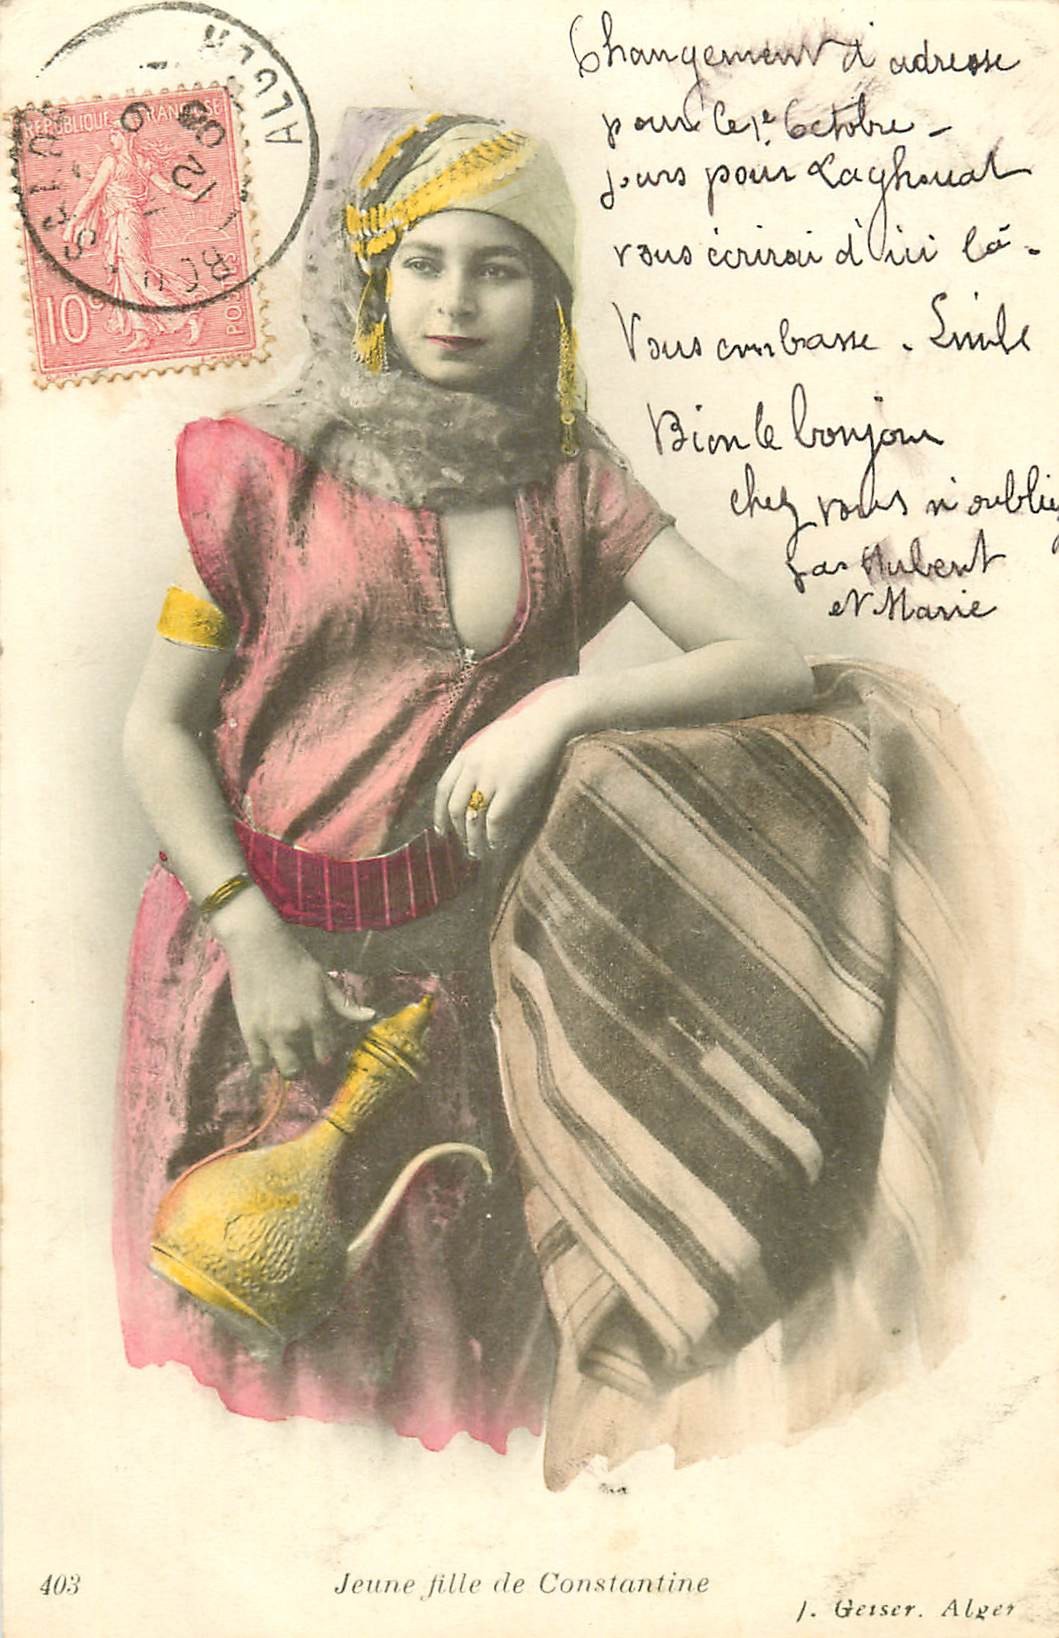 RÉPUBLIQUE FRANÇAISE
10c
POSTES
ALGER
Changement d'adresse
pour le 1e Octobre -
jours pour Laghouat
vous écrirai d'ici là -
Vous embrasse . Emile
Bien le bonjour
chez vous n'oubliez
pas Aubert
et Marie
403
Jeune fille de Constantine
J. Geiser. Alger